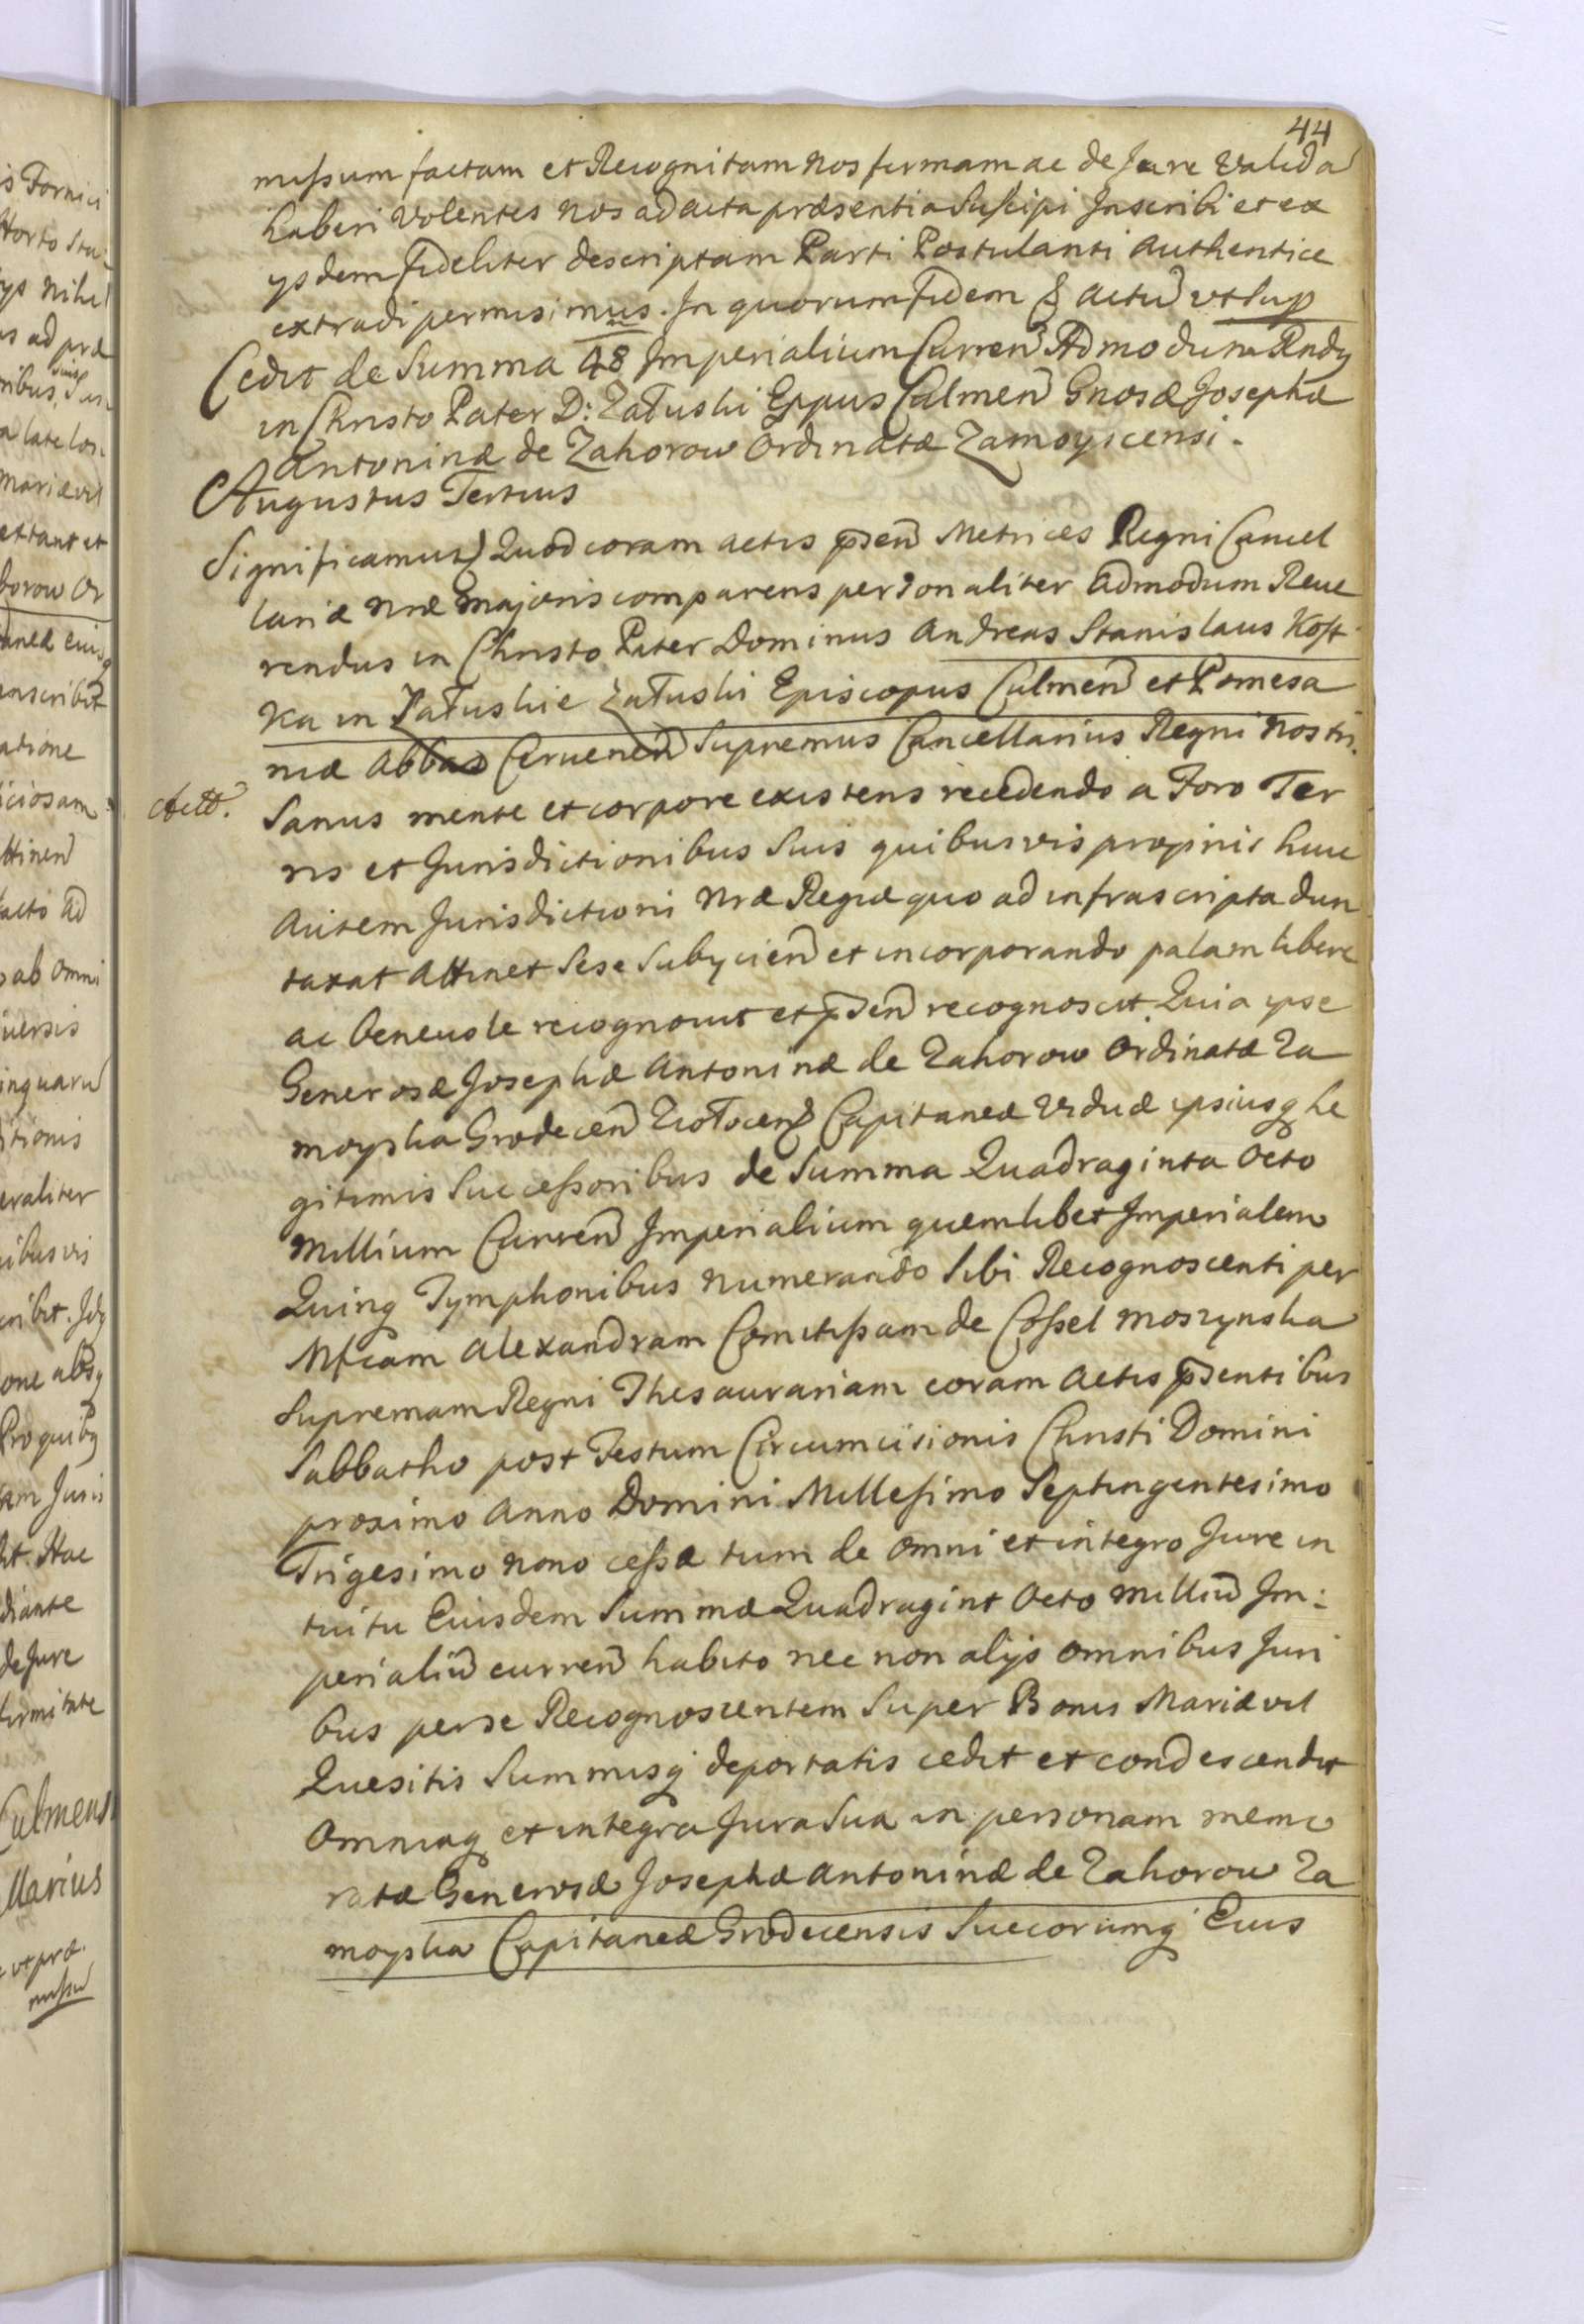 44
missum factam et Recognitam nos firmam ac de Jure valida
haberi volentes nos ad acta præsentia suscipi Inscribi et ex
ysdem fideliter descriptam Parti Postulanti authentice
extradi permisimus. In quorum fidem & actū ut sup
Cedit de Summa 48 Imperialium Curren̄ Admodum Rndg
in Christo Pater D: Załuski Eppus Culmen̄ Gnosæ Josephæ
Antoninæ de Zahorow Ordinatæ Zamoyscensi.
Augustus Tertius
Significamus) Quod coram actis p̄sen̄ Metrices Regni Cancel
lariæ nræ majoris comparens personaliter admodum Reve
rendus in Christo Pater Dominus Andreas Stanislaus Kost
ka in Załuskie Załuski Episcopus Culmen̄ et Pomesa
niæ Abbas Cervenen̄ Supremus Cancellarius Regni nostri.
Actt. Sanus mente et corpore existens recedendo a Foro Ter
ris et Jurisdictionibus suis quibusvis proprijs huic
autem Jurisdictioni nræ Regiæ quo ad infrascripta dun
taxat attinet sese subycien̄ et incorporando palam libere
ac benevole recognovit et p̄sen̄ recognoscit Quia ipse
Generosæ Josephæ Antoninæ de Zahorow Ordinatæ Za
moyska Grodecen̄ Płoscen̄ Capitaneæ viduæ ipsiusq le
gitimis successoribus de Summa Quadraginta Octo
Millium Curren̄ Imperialium quemlibet Imperialem
Quinq Tymphonibus numerando sibi Recognoscenti per
Mficam Alexandram Comitissam de Cossel Moszynska
Supremam Regni Thesaurariam coram actis p̄sentibus
Sabbatho post Festum Circumcisionis Christi Domini
proximo Anno Domini Millesimo Septingentesimo
Trigesimo nono cessæ tum de omni et integro Jure in
tuitu Eiusdem Summæ Quadragint Octo Milliū Im:
perialiū curren̄ habito nec non alijs omnibus Juri
bus per se Recognoscentem super Bonis Mariævil
Quesitis Summisq deportatis cedit et condescendit
Omniaq et integra Jura sua in personam memo
ratæ Generosæ Josephæ Antoninæ de Zahorow Za
moyska Capitaneæ Grodecensis Succorumq Eius